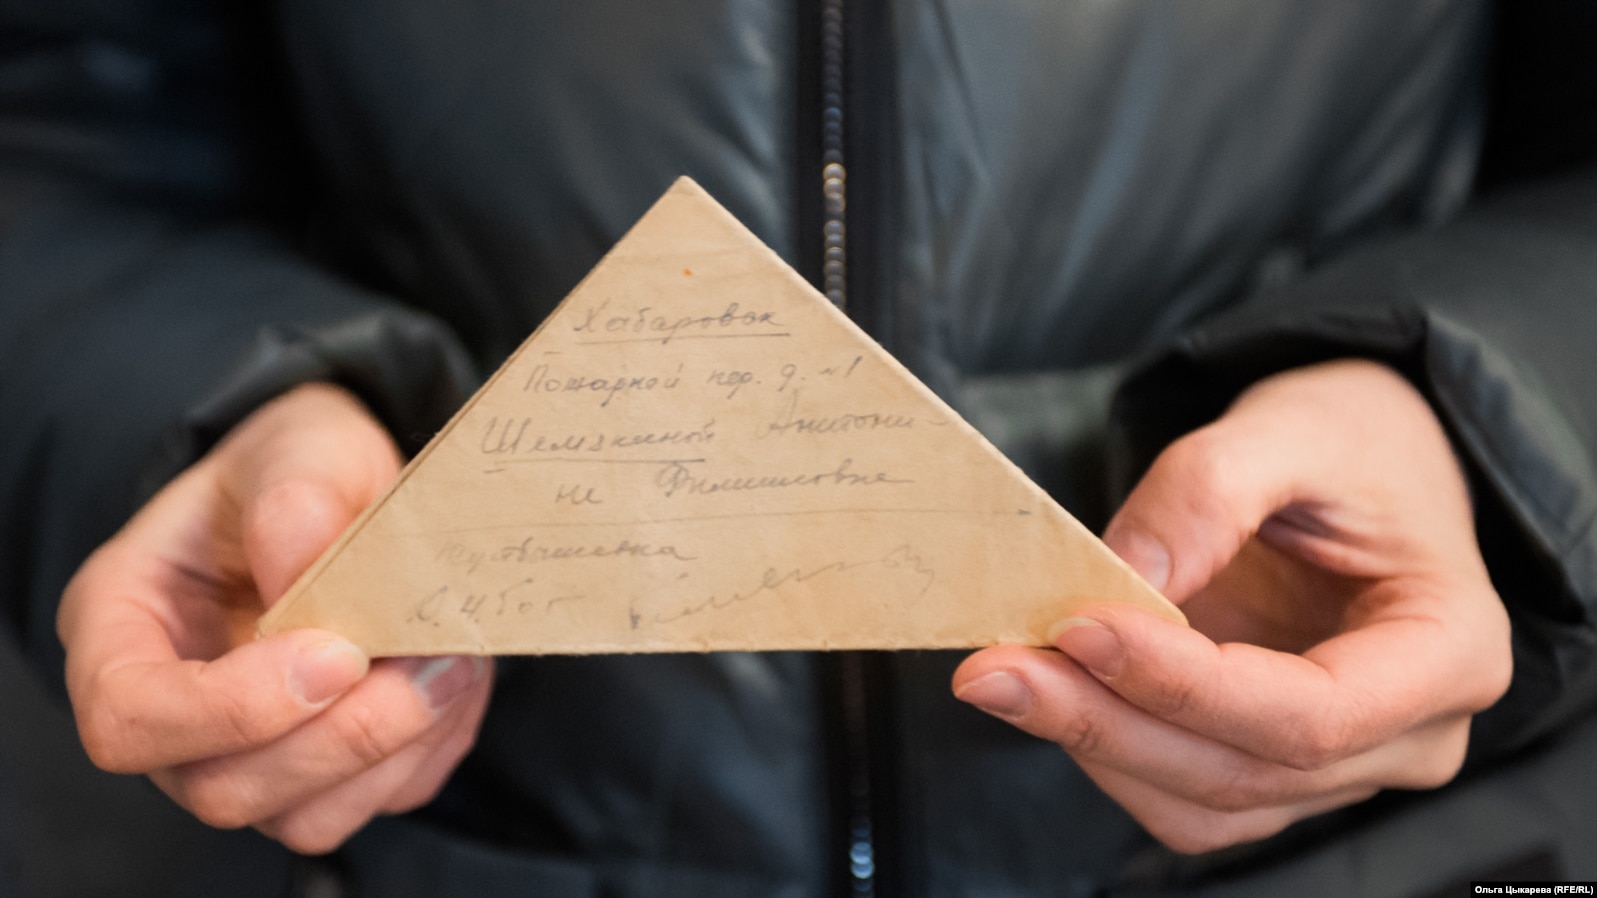 Хабаровск
Пожарной пер. д. №1
Шемякиной Антони-
не Филипповне
Куйбышевка
Ольга Цыкарева (RFE/RL)